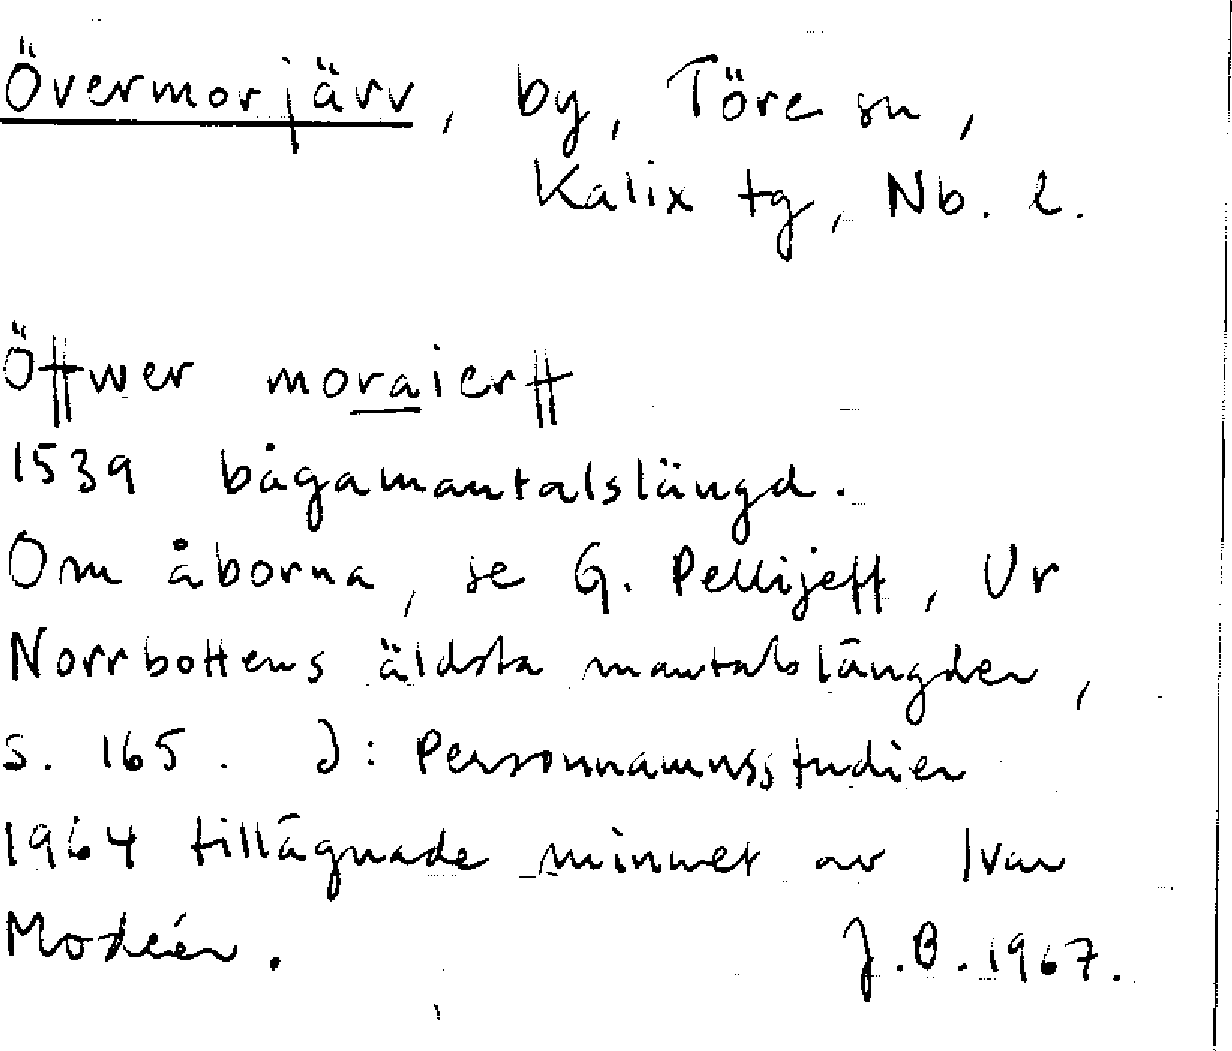 Övermorjärv, by, Töre sn,
Kalix tg, Nb. l.
Öffwer moraierff
1539 bågamantalslängd.
Om åborna, se G. Pellijeff, Ur
Norrbottens äldsta mantalslängder,
s. 165. I: Personnamnsstudier
1964 tillägnade minnet av Ivar
Modéer.
J.B. 1967.